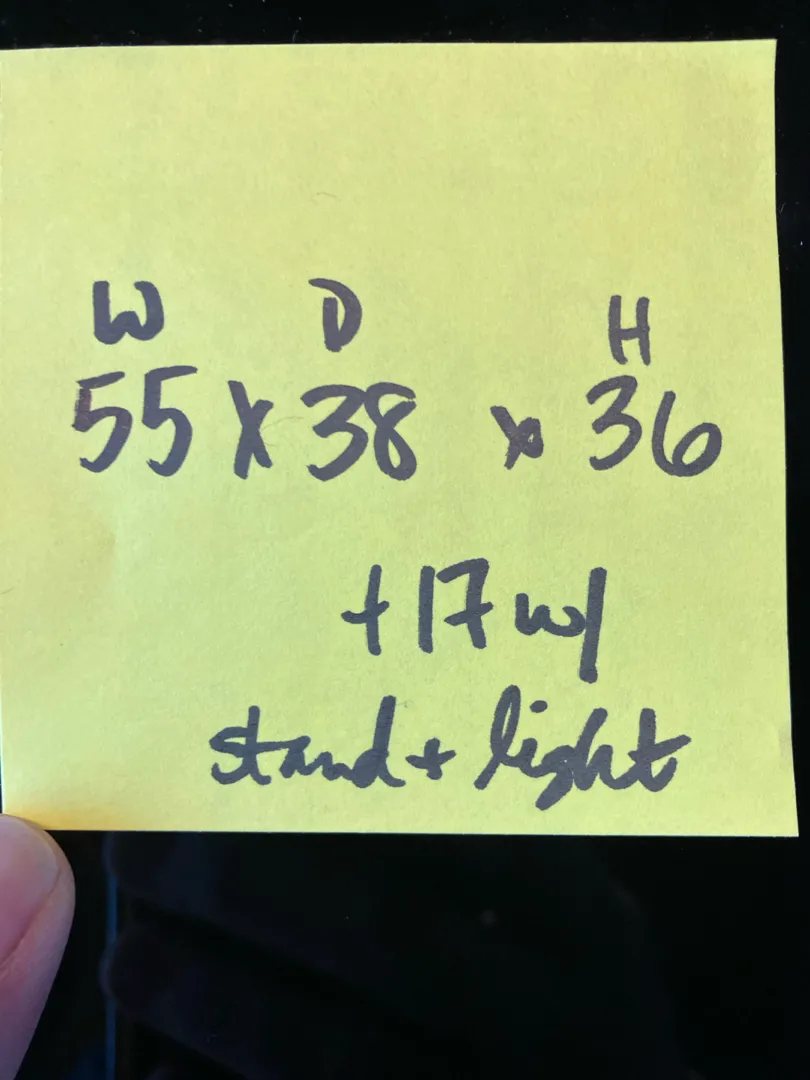 W D H
55 x 38 x 36
+17 w/
stand + light